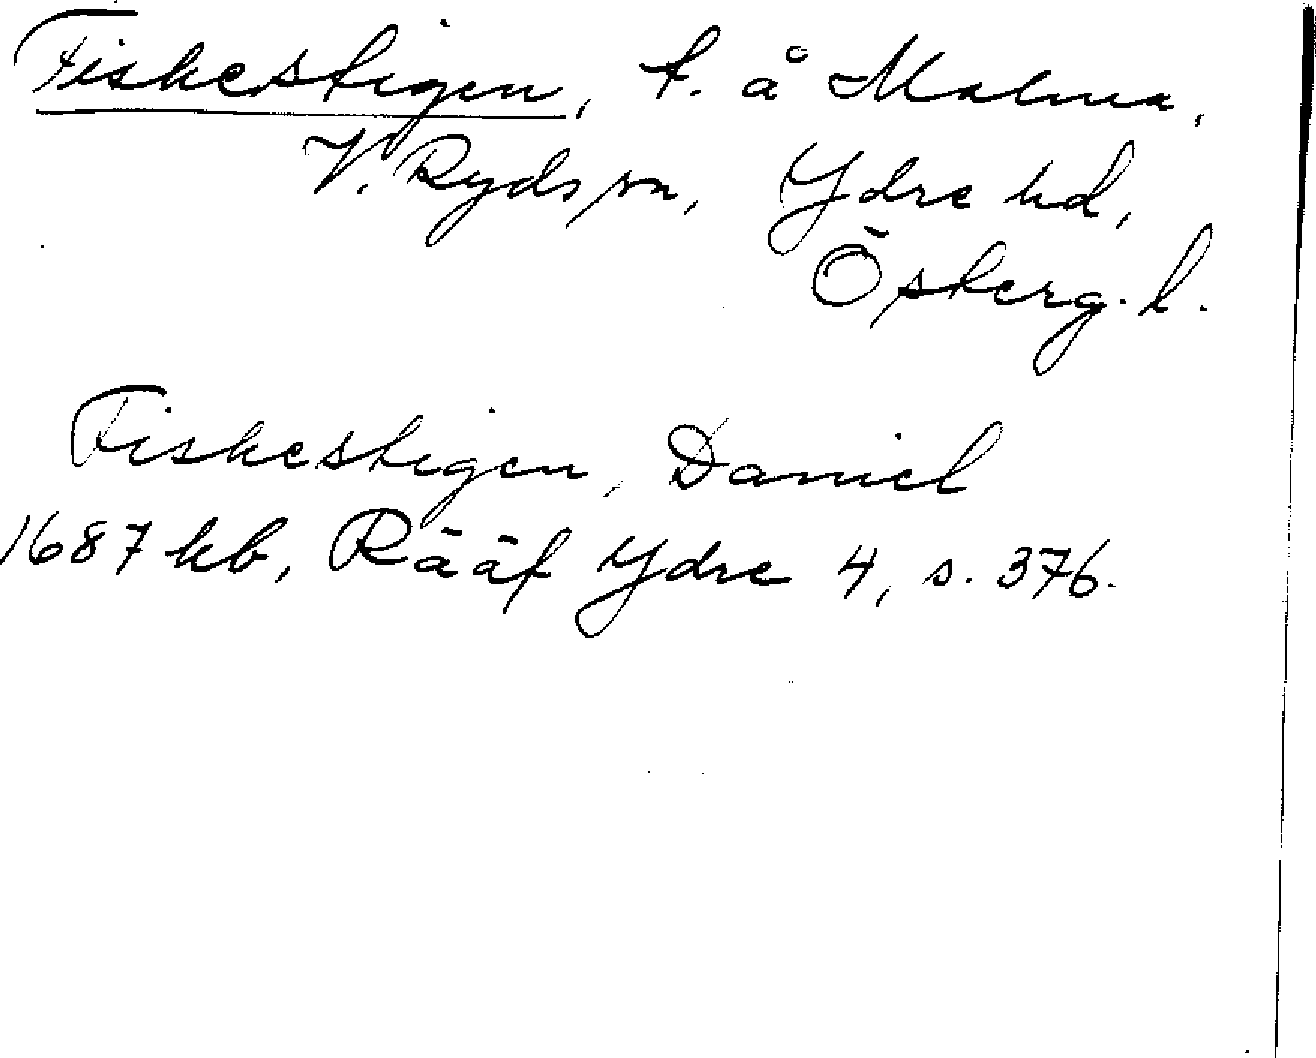 Fiskestigen, t. å Malma,
V. Ryds sn, Ydre hd,
Österg. l.
Fiskestigen, Daniel
1687 kb, Rääf Ydre 4, s. 376.